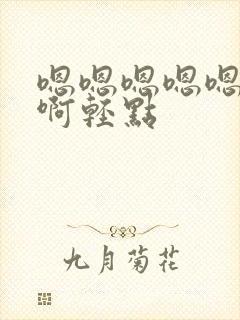 嗯嗯嗯嗯嗯
啊輕點
九月菊花